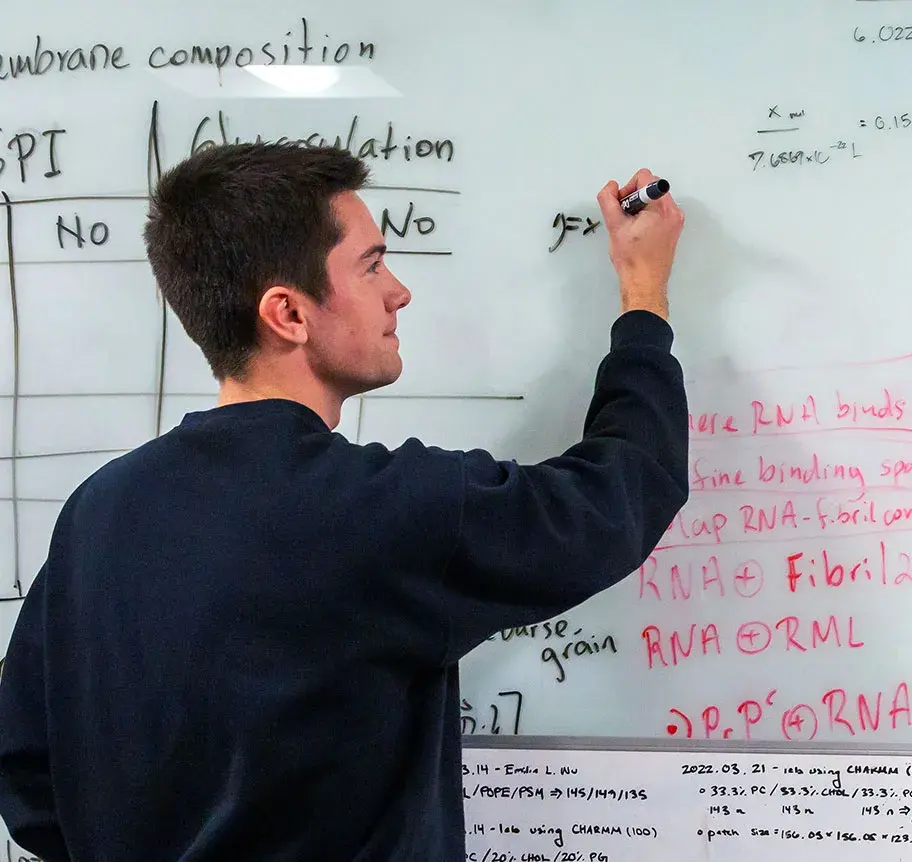 embrane composition
GPI Glycosylation
No No
6.022
x mol
= 0.15
7.6869×10⁻²² L
y=x
here RNA binds
fine binding spo
Map RNA-fibril con
RNA ⊕ Fibril 2
RNA ⊕ RML
P. P' (+) RNA
course-
grain
.27
3.14 - Emilia L. Wu
L/POPE/PSM ⇒ 145/149/135
.14 - lab using CHARMM (100)
C / 20% CHOL / 20% PG
2022.03.21 - lab using CHARMM (
○ 33.3% PC / 33.3% CHOL / 33.3% P
143 n 143 n 143 n ⇒
○ patch size = 156.05 × 156.05 × 123